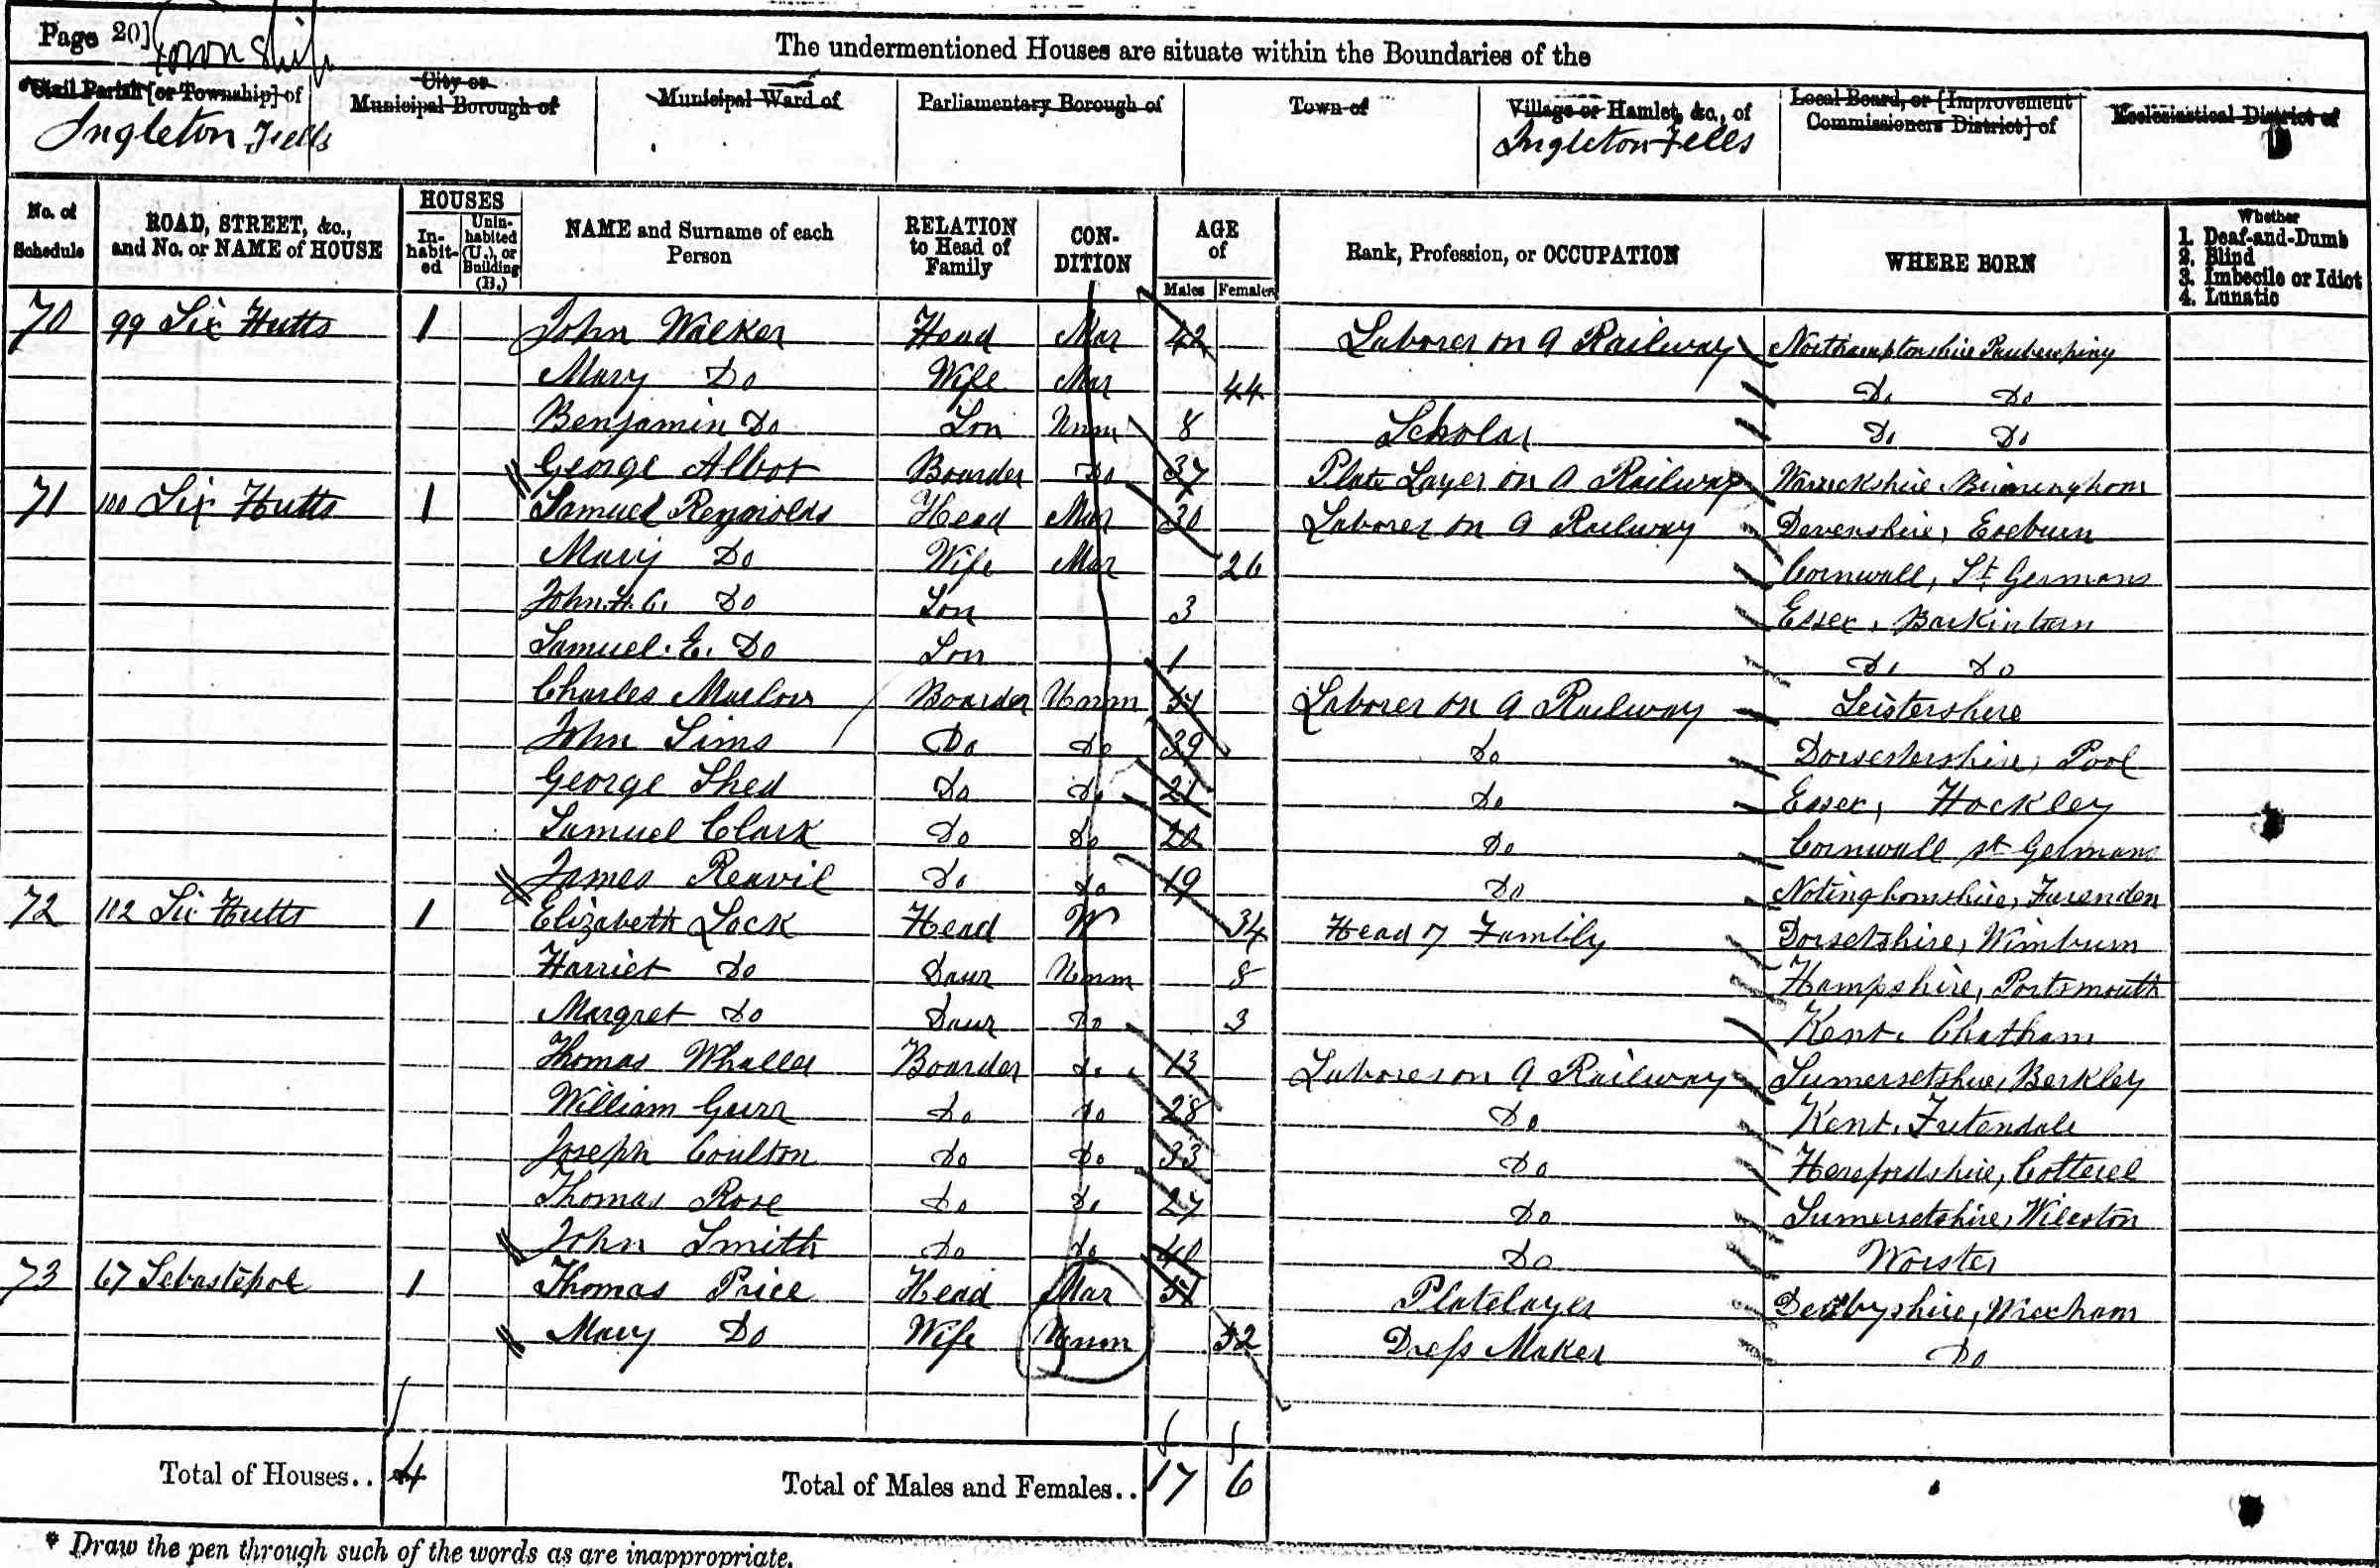 Page 20] Township
The undermentioned Houses are situate within the Boundaries of the
Civil Parish [or Township] of
Ingleton Fells
City or
Municipal Borough of
Municipal Ward of
Parliamentary Borough of
Town of
Village or Hamlet, &c., of
Ingleton Fells
Local Board, or [Improvement
Commissioners District] of
Ecclesiastical District of
No. of
Schedule
ROAD, STREET, &c.,
and No. or NAME of HOUSE
HOUSES
In-
habit-
ed
Unin-
habited
(U.), or
Building
(B.)
NAME and Surname of each
Person
RELATION
to Head of
Family
CON-
DITION
AGE
of
Males Females
Rank, Profession, or OCCUPATION
WHERE BORN
Whether
1. Deaf-and-Dumb
2. Blind
3. Imbecile or Idiot
4. Lunatic
70 99 Six Hutts 1 John Walker Head Mar 42 Laborer on a Railway Northamptonshire
Mary Do Wife Mar 44 Do Do
Benjamin Do Son Unm 8 Scholar Do Do
George Albot Boarder Do 37 Plate Layer on a Railway Warrickshire Birmingham
71 100 Six Hutts 1 Samuel Reynolds Head Mar 30 Laborer on a Railway Devenshire, Exeburn
Mary Do Wife Mar 26 Cornwall, St Germans
John. H. C. Do Son 3 Essex, Barkintun
Samuel. E. Do Son 1 Do Do
Charles Marlow Boarder Unmm Laborer on a Railway Leistershire
John Sims Do Do 39 Do Dorsestershire, Pool
George Shed Do Do 21 Do Essex, Hockley
Samuel Clark Do Do 20 Do Cornwall st Germans
James Reavil Do Do 19 Do Notinghomshire, Farenden
72 112 Six Hutts 1 Elizabeth Lock Head W 34 Head of Fambly Dorsetshire, Wimburn
Harriet Do Daur Unmm 8 Hampshire, Portsmouth
Margret Do Daur Do 3 Kent, Chatham
Thomas Whaller Boarder Do 13 Laborer on a Railway Sumersetshire, Berkley
William Gurr Do Do 28 Do Kent, Fretendale
Joseph Coulton Do Do 33 Do Herefordshire, Cotterel
Thomas Rose Do Do 27 Do Sumersetshire, Wileston
John Smith Do Do 40 Do Worster
73 67 Sebastepol 1 Thomas Price Head Mar 51 Platelayer Denbyshire, Wrexham
Mary Do Wife Unmm 52 Dress Maker Do
Total of Houses.. 4 Total of Males and Females.. 17 6
* Draw the pen through such of the words as are inappropriate.